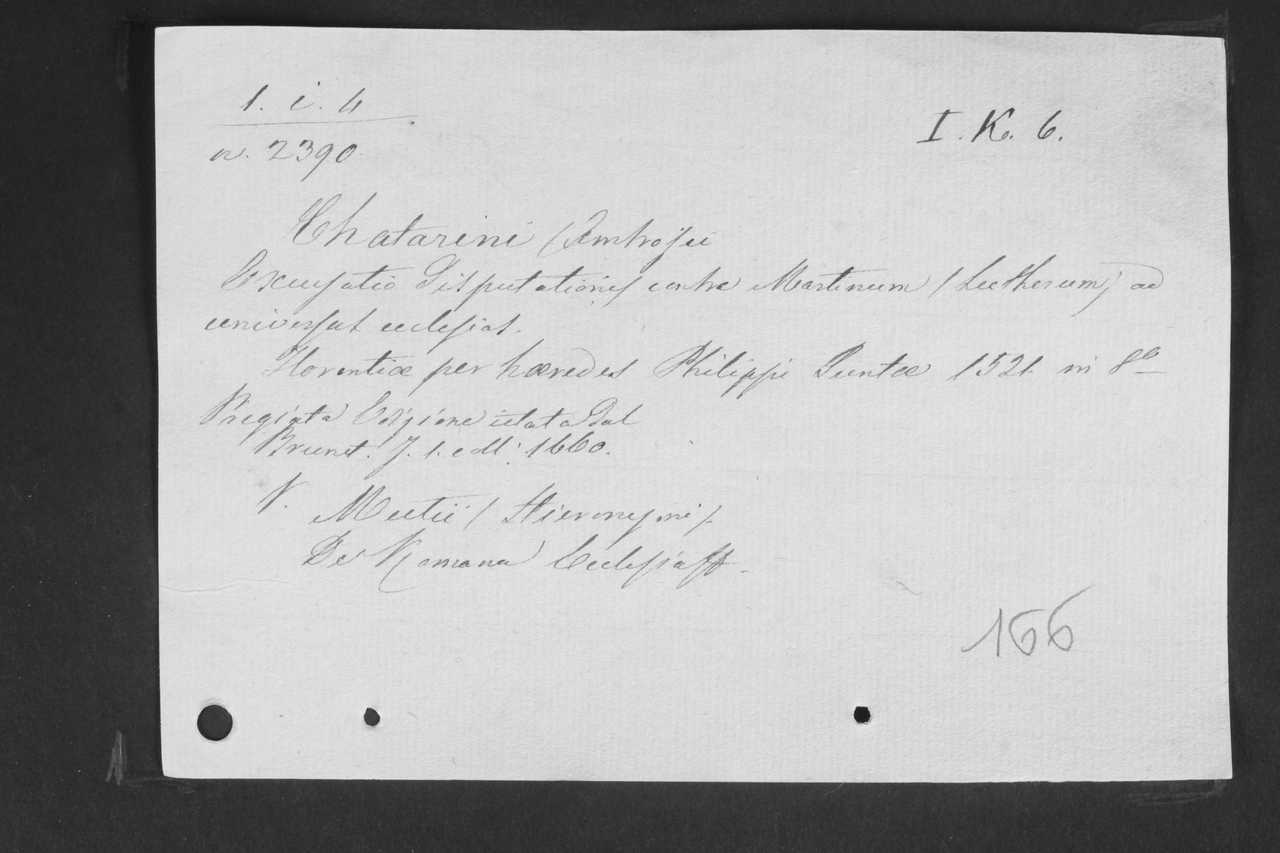 1. i. 4
I. K. 6.
n. 2390
Chatarini (Ambrosii
Excusatio Disputationis contra Martinum (Lutherum) ad
universas ecclesias.
Florentiæ per hæredes Philippi Juntæ 1521 in 8º
Pregiata Edizione citata dal
Brunet. T. 1. coll. 1660.
V. Mutii (Hieronymi).
De Romana Ecclesia
166